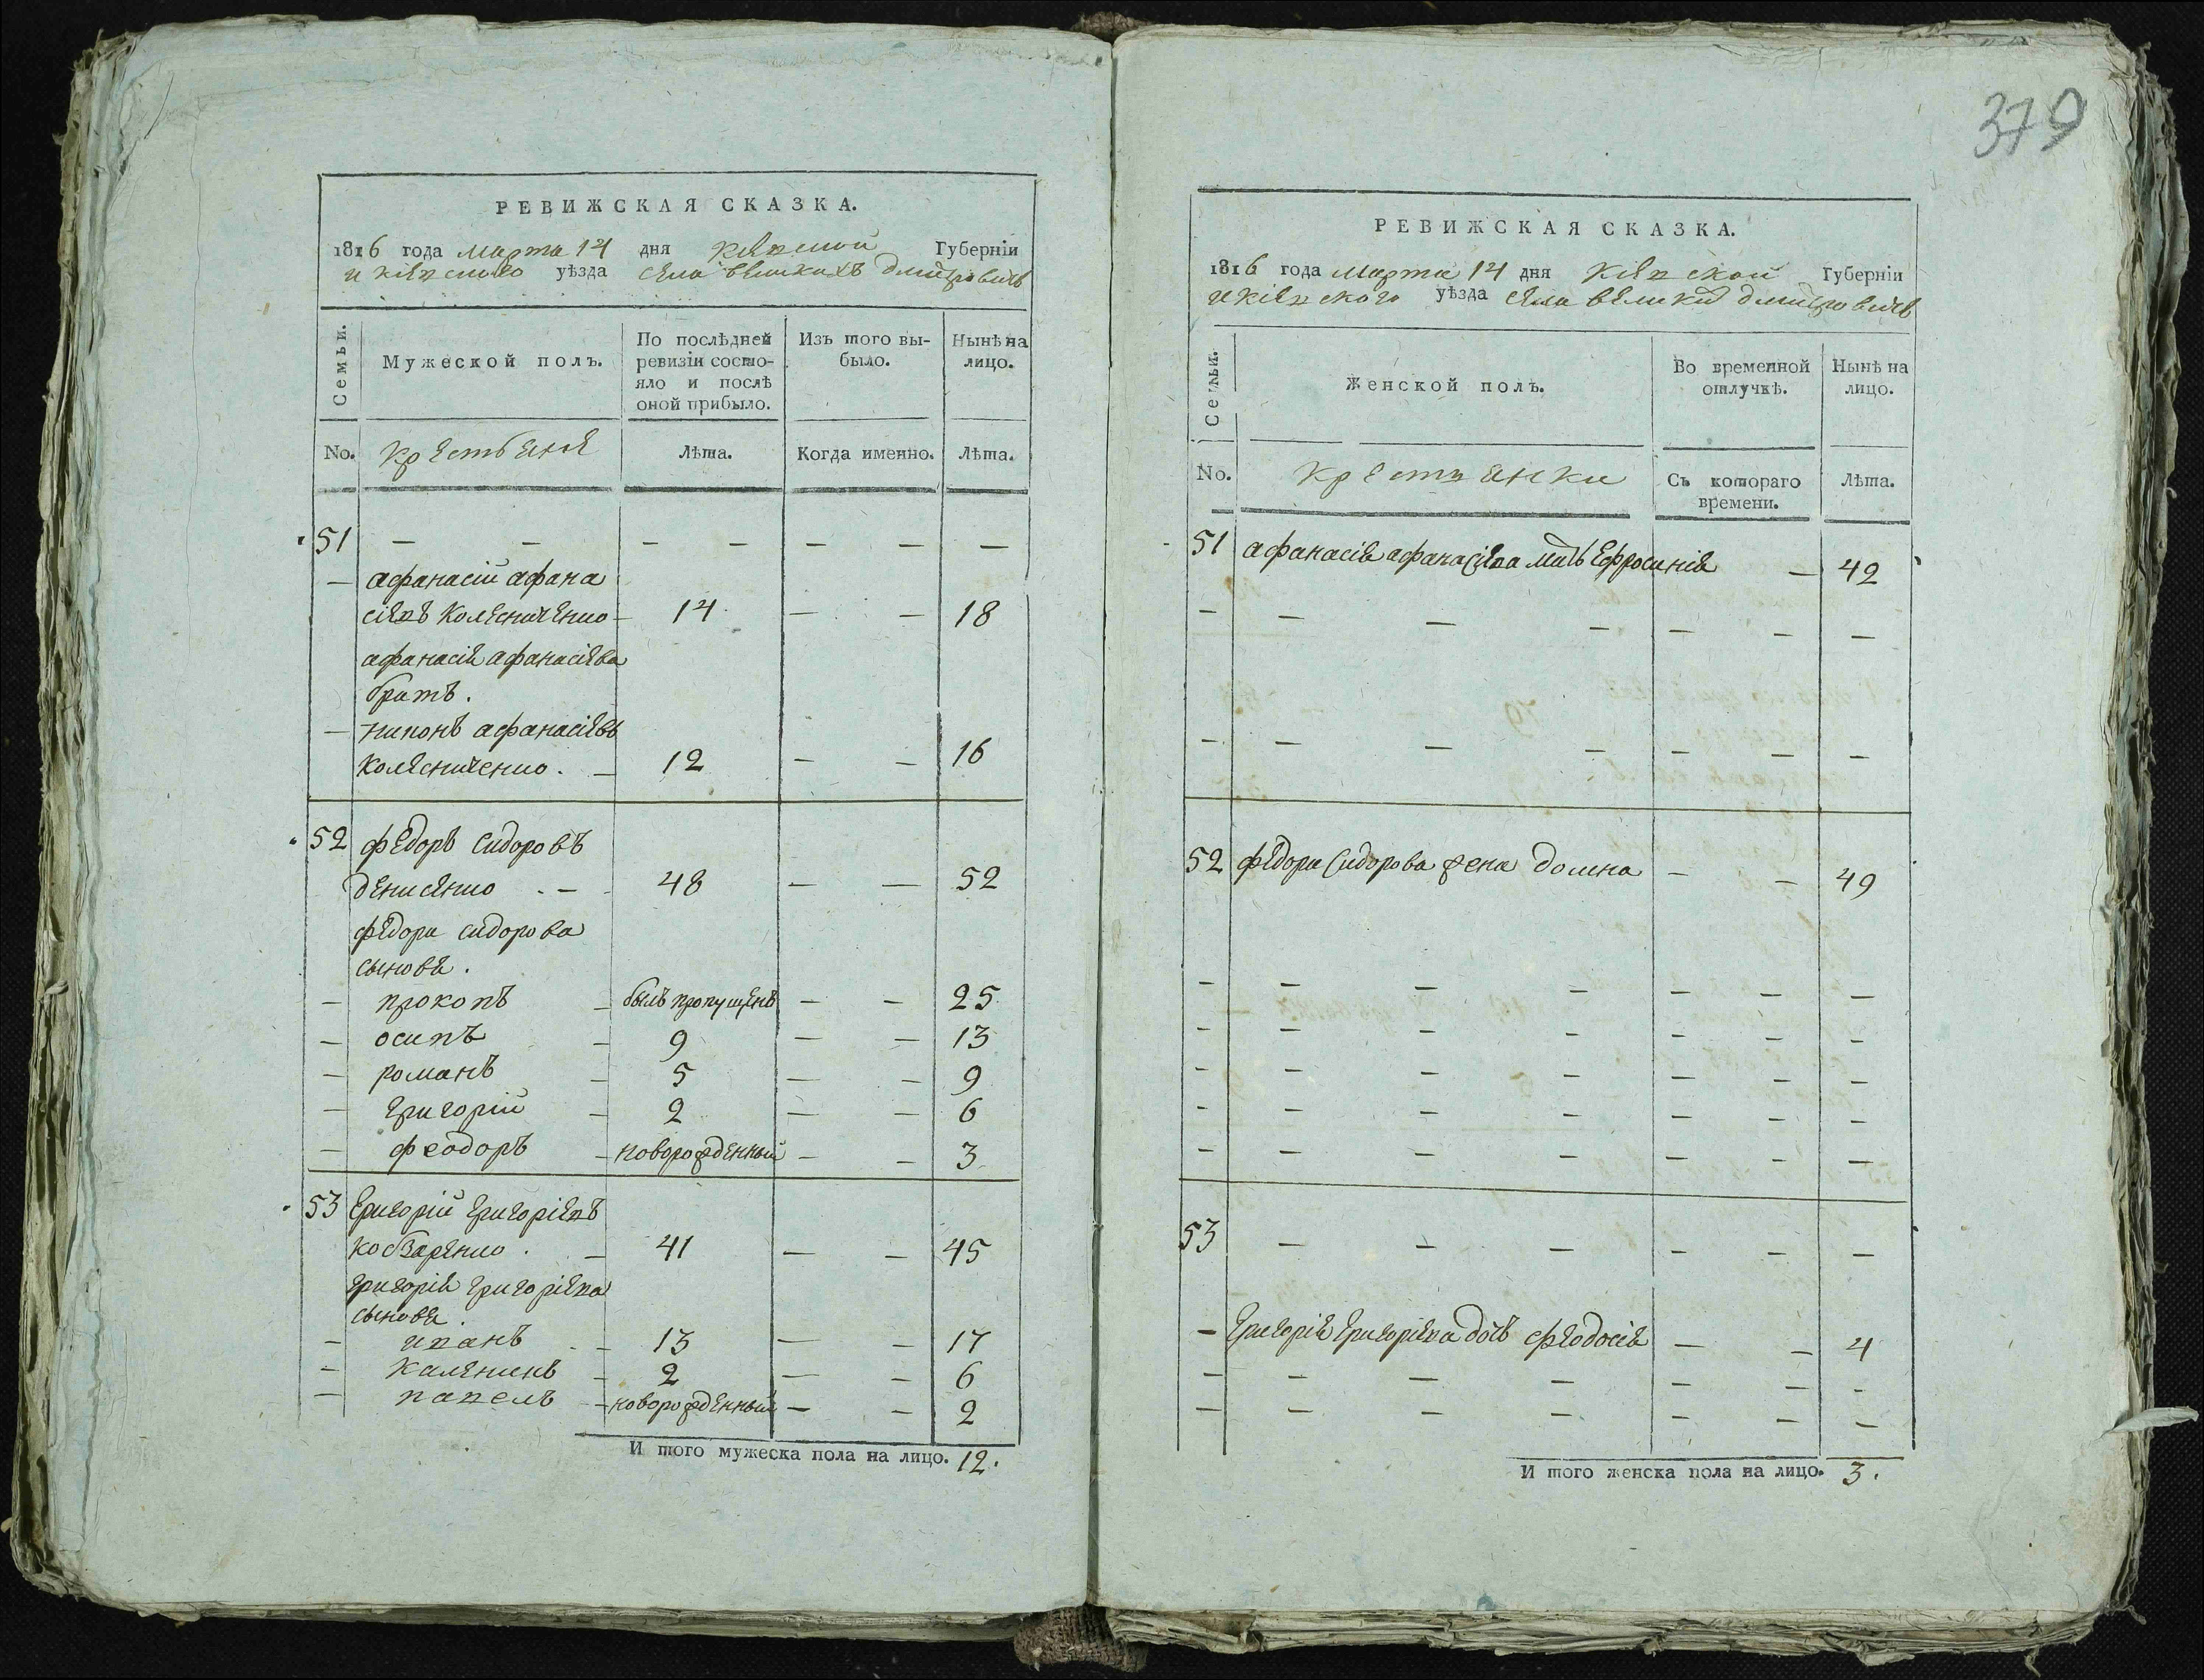 379
РЕВИЖСКАЯ СКАЗКА.
1816 года марта 14 дня Кіевской Губерніи
и кіевского уѣзда села великихъ дмитровичъ
Семьи.
Мужеской полъ.
По послѣдней ревизіи состояло и послѣ оной прибыло.
Изъ того выбыло.
Нынѣ на лицо.
No. крестьяне
Лѣта.
Когда именно.
Лѣта.
51 — — — — — — —
— афанасій афана
сіевъ Колесниченко — 14 — — 18
афанасія афанасіева
братъ.
— нипонъ афанасіевъ
колесниченко. — 12 — — 16
52 федоръ Сидоровъ
денисенко . — 48 — — 52
федора сидорова
сыновя.
— прокопъ — былъ пропущенъ — — 25
— осипъ — 9 — — 13
— романъ — 5 — — 9
— григорій — 2 — — 6
— феодоръ — новорожденный — — 3
53 Григорій григоріевъ
кобзаренко . — 41 — — 45
григорія григоріева
сыновя.
— иванъ . — 13 — — 17
— каленикъ — 2 — — 6
— павелъ — новорожденный — — 2
И того мужеска пола на лицо. 12.
РЕВИЖСКАЯ СКАЗКА.
1816 года марта 14 дня Кіевской Губерніи
и кіевского уѣзда села великихъ дмитровичъ
Семьи.
Женской полъ.
Во временной отлучкѣ.
Нынѣ на лицо.
No. крестьянки
Съ котораго времени.
Лѣта.
51 афанасія афанасіева мать Ефросинія — 42
— — — — — — —
— — — — — — —
52 федора Сидорова жена домна — — 49
— — — — — — —
— — — — — — —
— — — — — — —
— — — — — — —
— — — — — — —
53 — — — — — —
— Григорія Григоріева дочь феодосія — — 4
— — — — — — —
— — — — — — —
И того женска пола на лицо. 3.